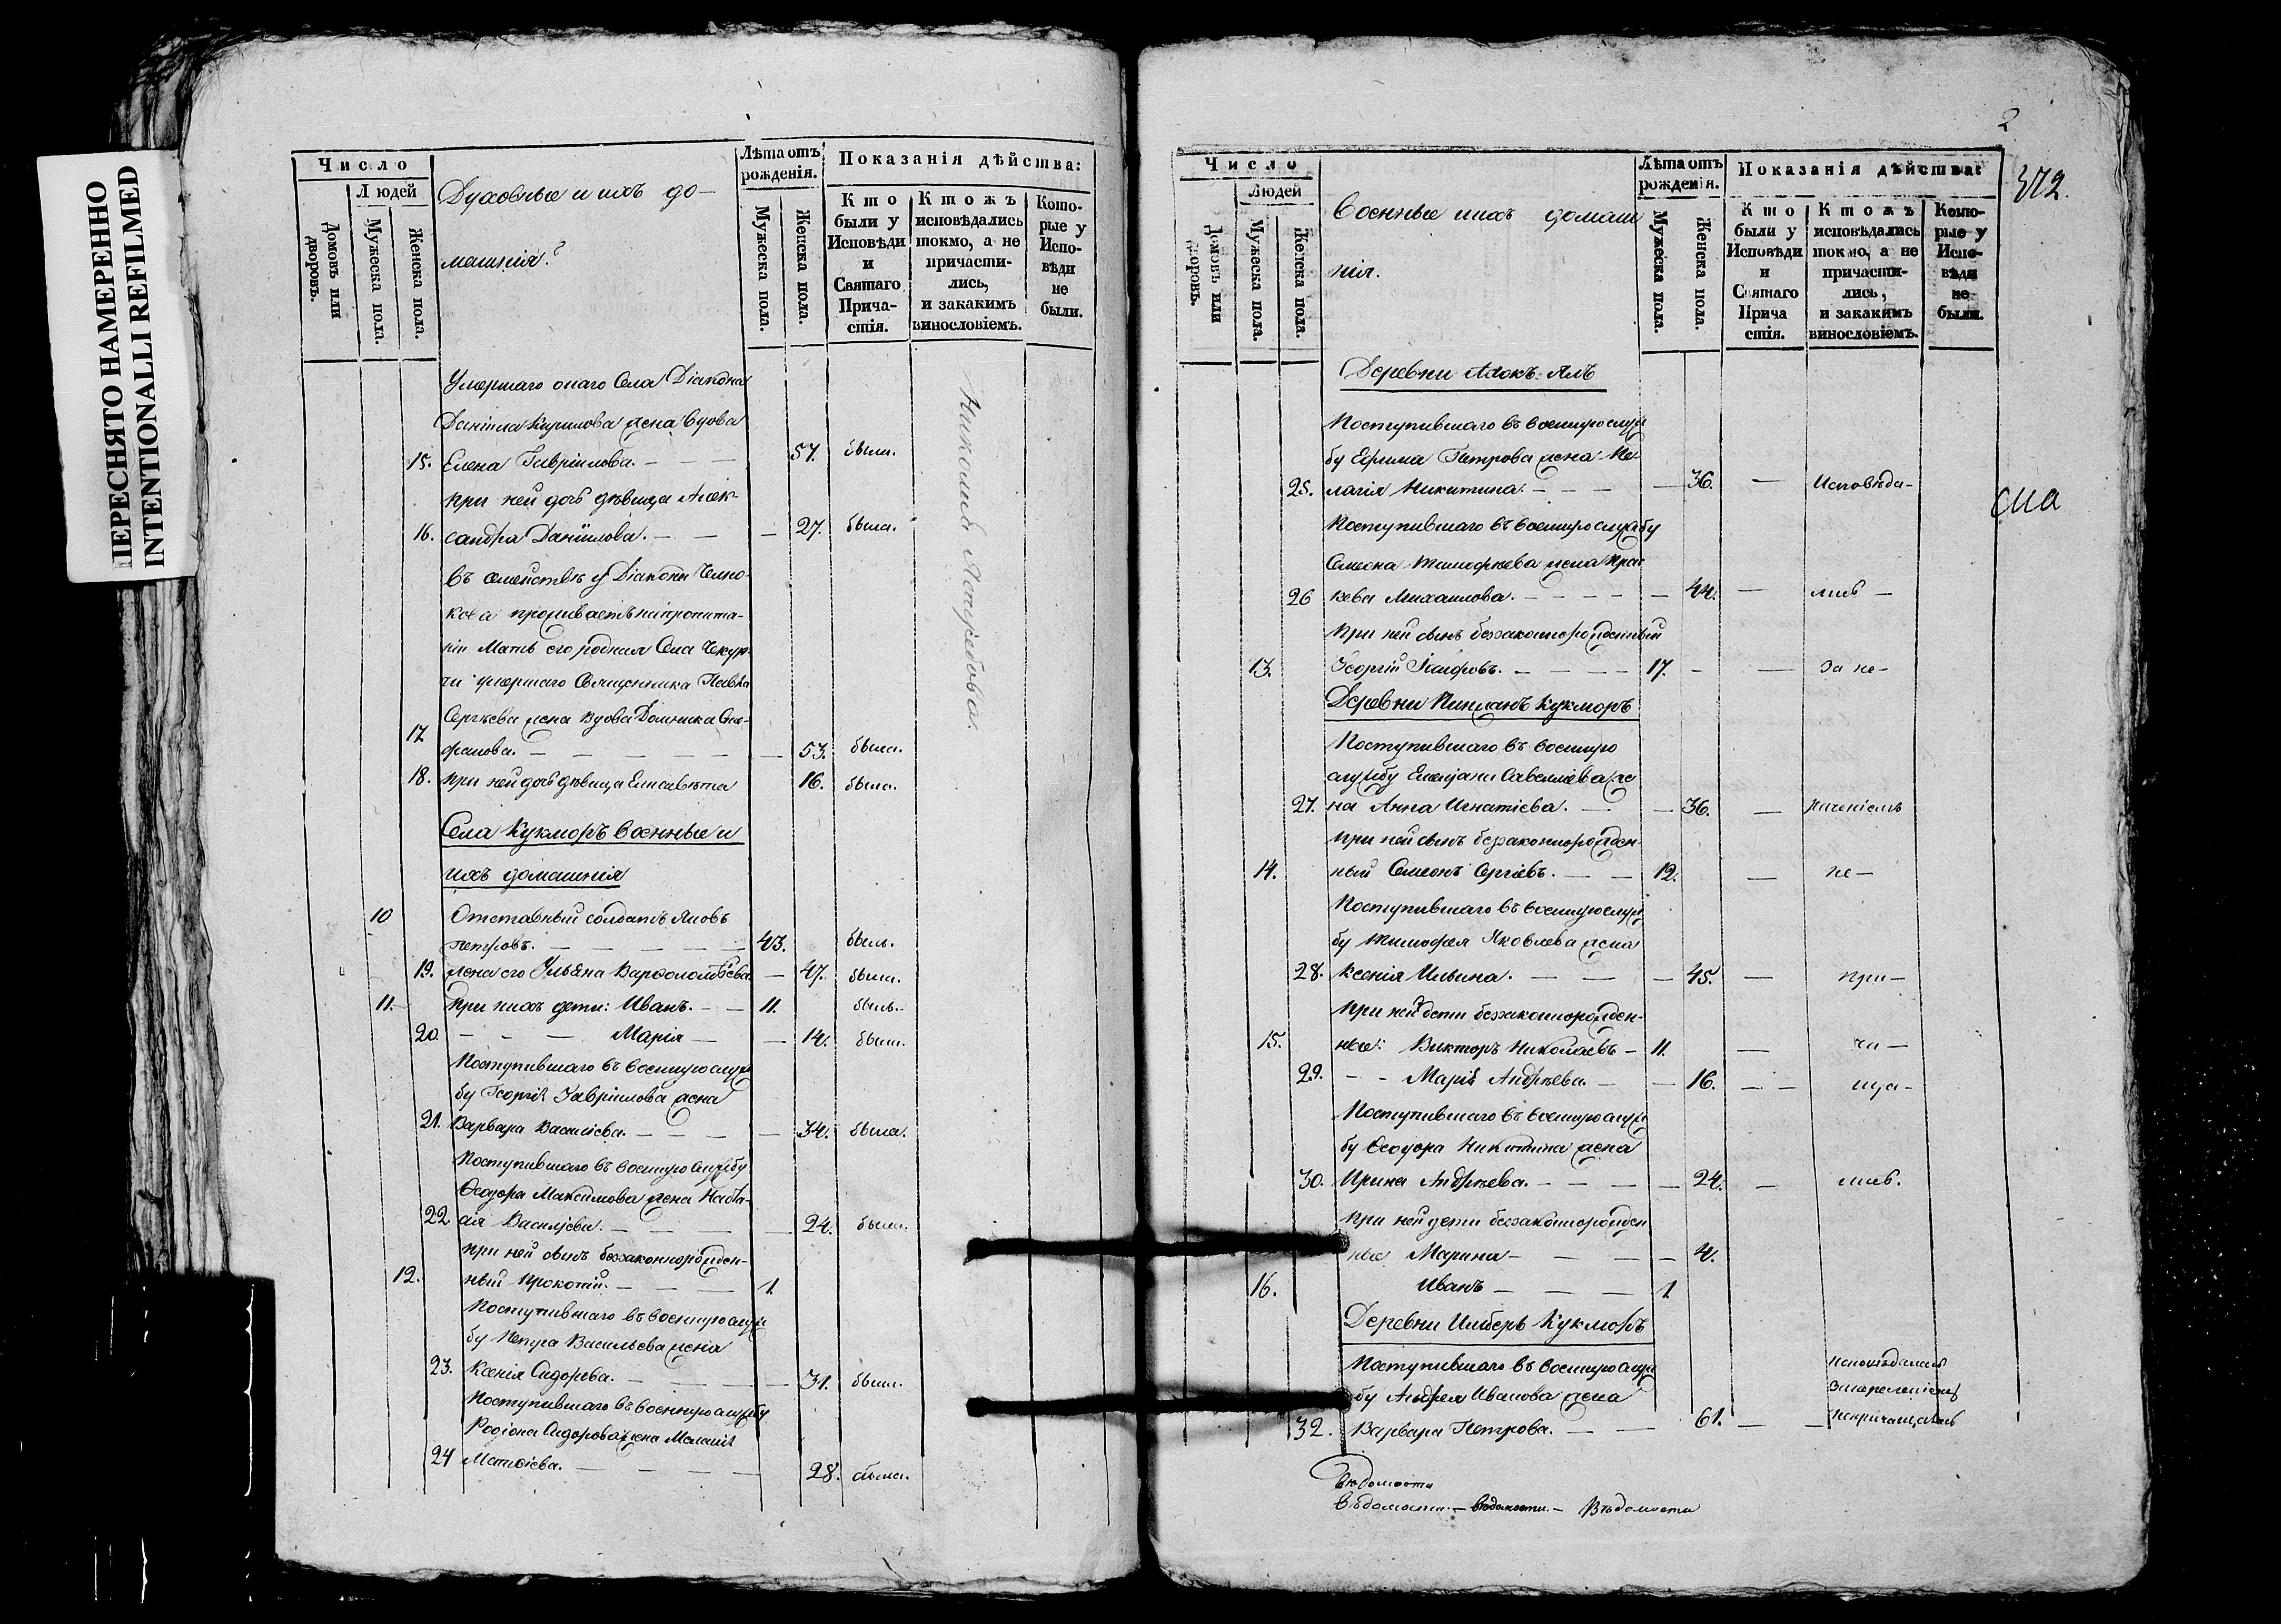 ПЕРЕСНЯТО НАМЕРЕННО
INTENTIONALLI REFILMED
Число
Людей
Домовъ или дворовъ.
Мужеска пола.
Женска пола.
Духовные и ихъ до-
машнія.
Лѣта отъ рожденія.
Мужеска пола.
Женска пола.
Показанія дѣйства:
Кто были у Исповѣди и Святаго Прича-стія.
Ктожъ исповѣдались токмо, а не причасти-лись, и закакимъ винословіемъ.
Кото-рые у Испо-вѣди не были.
Умершаго онаго Села Діакона
Даніила Кирилова жена вдова
15. Елена Гавріилова. — 57. была.
при ней дочь дѣвица Алек-
16. сандра Даніилова. — — 27. была.
въ семействѣ у Діакона
проживаетъ на пропита-
ніи Мать его родная Села
умершаго Священника
Сергѣева жена вдова Домника Сте-
17 фанова. — 53. была.
18. при ней дочь дѣвица Елисавета 16. была.
Села Кукморъ военные и
ихъ домашнія
10 Отставный солдатъ
Петровъ. — 43. былъ.
19. жена его Ульяна Варфоломѣева — 47. была.
11. при нихъ дети: Иванъ. — 11. былъ.
20. — Марія — 14. была.
Поступившаго въ военную служ
бу Георгія Гавріилова жена
21. Варвара Василіева. — 34. была.
Поступившаго въ военную службу
Ѳеодора Максимова жена Наста-
22 сія Василіева. — 24. была.
при ней сынъ беззаконнорожден-
12. ный Прокопій. — 1.
Поступившаго въ военную служ
бу Петра Васильева жена
23. Ксенія Сидорова. — 31. была.
Поступившаго въ военную службу
Родіона Сидорова жена Меланія
24 Матѳіева. — 28. была.
2
372.
Число
Людей
Домовъ или дворовъ.
Мужеска пола.
Женска пола.
Военные и ихъ домаш
нія.
Лѣта отъ рожденія.
Мужеска пола.
Женска пола.
Показанія дѣйства:
Кто были у Исповѣди и Святаго Прича стія.
Ктожъ исповѣдались токмо, а не причасти-лись, и закакимъ винословіемъ.
Кото-рые у Испо-вѣди не были.
Деревни
Поступившаго въ военную служ
бу Ефима Петрова жена Пе-
25. лагія Никитина. — 36. — Исповѣда-
Поступившаго въ военную службу
Симеона Тимофѣева жена Прас
26 кева Михаилова. — 44. — лись —
при ней сынъ беззаконнорожденный
13. Георгій — 17. — За не-
Деревни Кукморъ
Поступившаго въ военную
службу Савелліева же
27. на Анна Игнатіева. — 36. —
при ней сынъ беззаконнорожден
14. ный Симеонъ Сергіевъ. — 12. — не —
Поступившаго въ военную служ
бу Тимофея Яковлева жена
28. Ксенія Ильина. — 45. — при —
при ней дети беззаконнорожден-
15. ные: Викторъ Николаевъ — 11. — ча —
29. — Марія Андрѣева. — 16. — ща-
Поступившаго въ военную служ
бу Ѳеодора Никитина жена
30. Ирина Андрѣева. — 24. — лись.
при ней дети беззаконнорожден
ные Марина — 4.
16. Иванъ — 1
Деревни Кукморъ
Поступившаго въ военную служ
бу Андрея Иванова жена
32. Варвара Петрова. — 61. —
Вѣдомости
Вѣдомости. — вѣдомости. — Вѣдомости